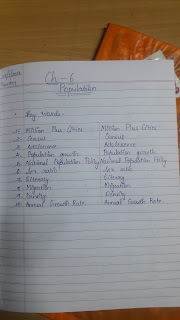 Ch-6
Population
Key Words-
1. Million Plus Cities Million Plus Cities
2. Census Census
3. Adolescence Adolescence
4. Population growth Population growth
5. National Population Policy National Population Policy
6. Sex ratio Sex ratio
7. Literacy Literacy
8. Migration Migration
9. Density Density
10. Annual Growth Rate. Annual Growth Rate.